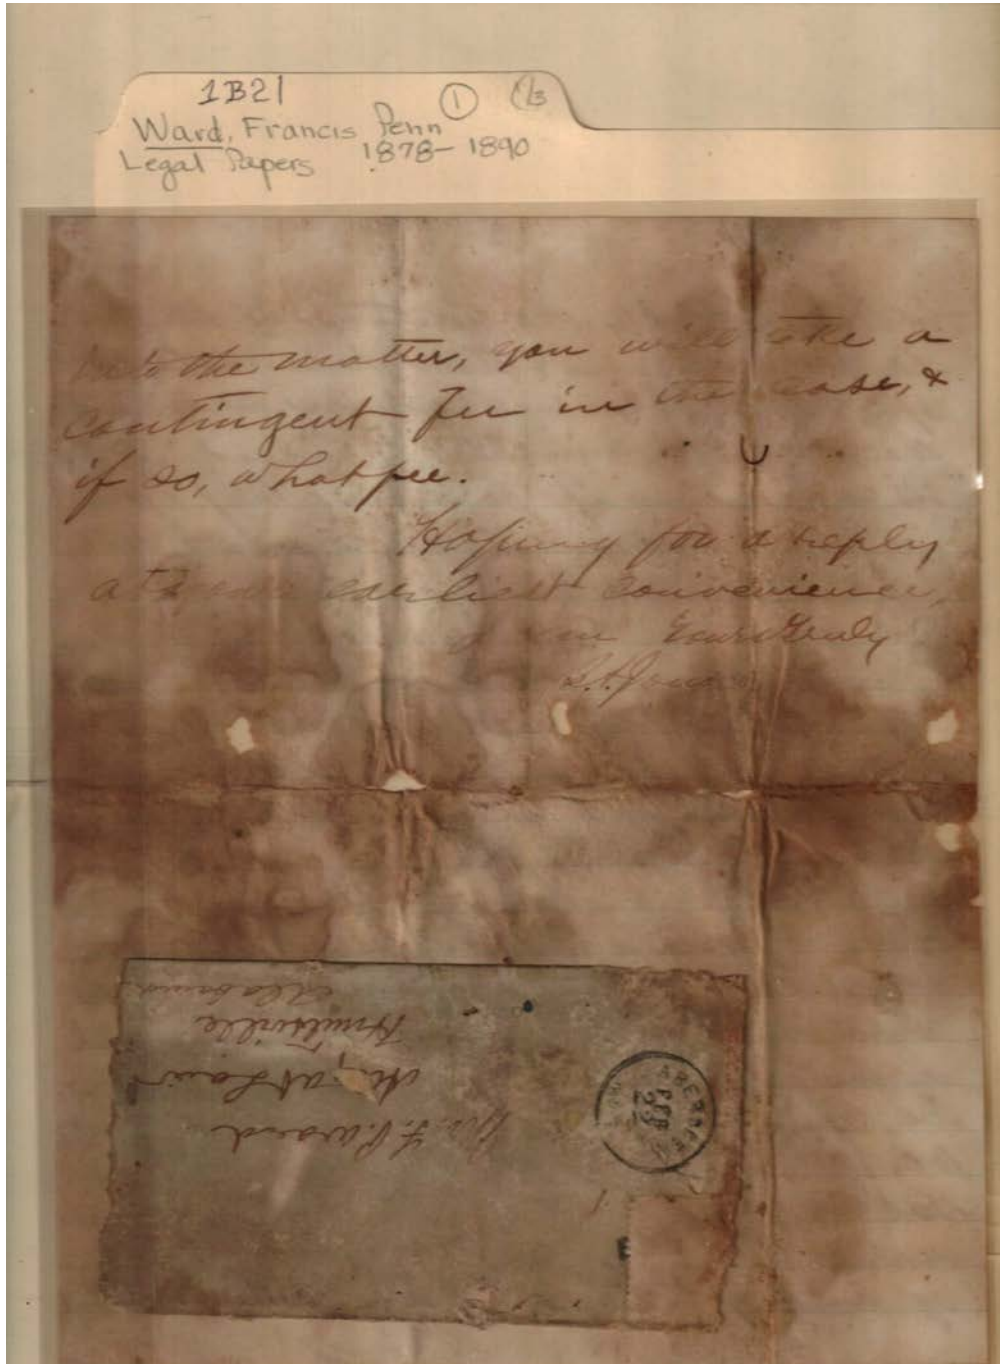 1B21 ① 1/3
Ward, Francis Penn
Legal Papers 1878-1890
into the matter, you will take a
contingent Fee in the case, &
if so, what fee.
Hoping for a reply
at your earliest convenience,
I am Yours truly
Mr. F. P. Ward
Atty at Law
Huntsville
Alabama
ABERDEEN
FEB